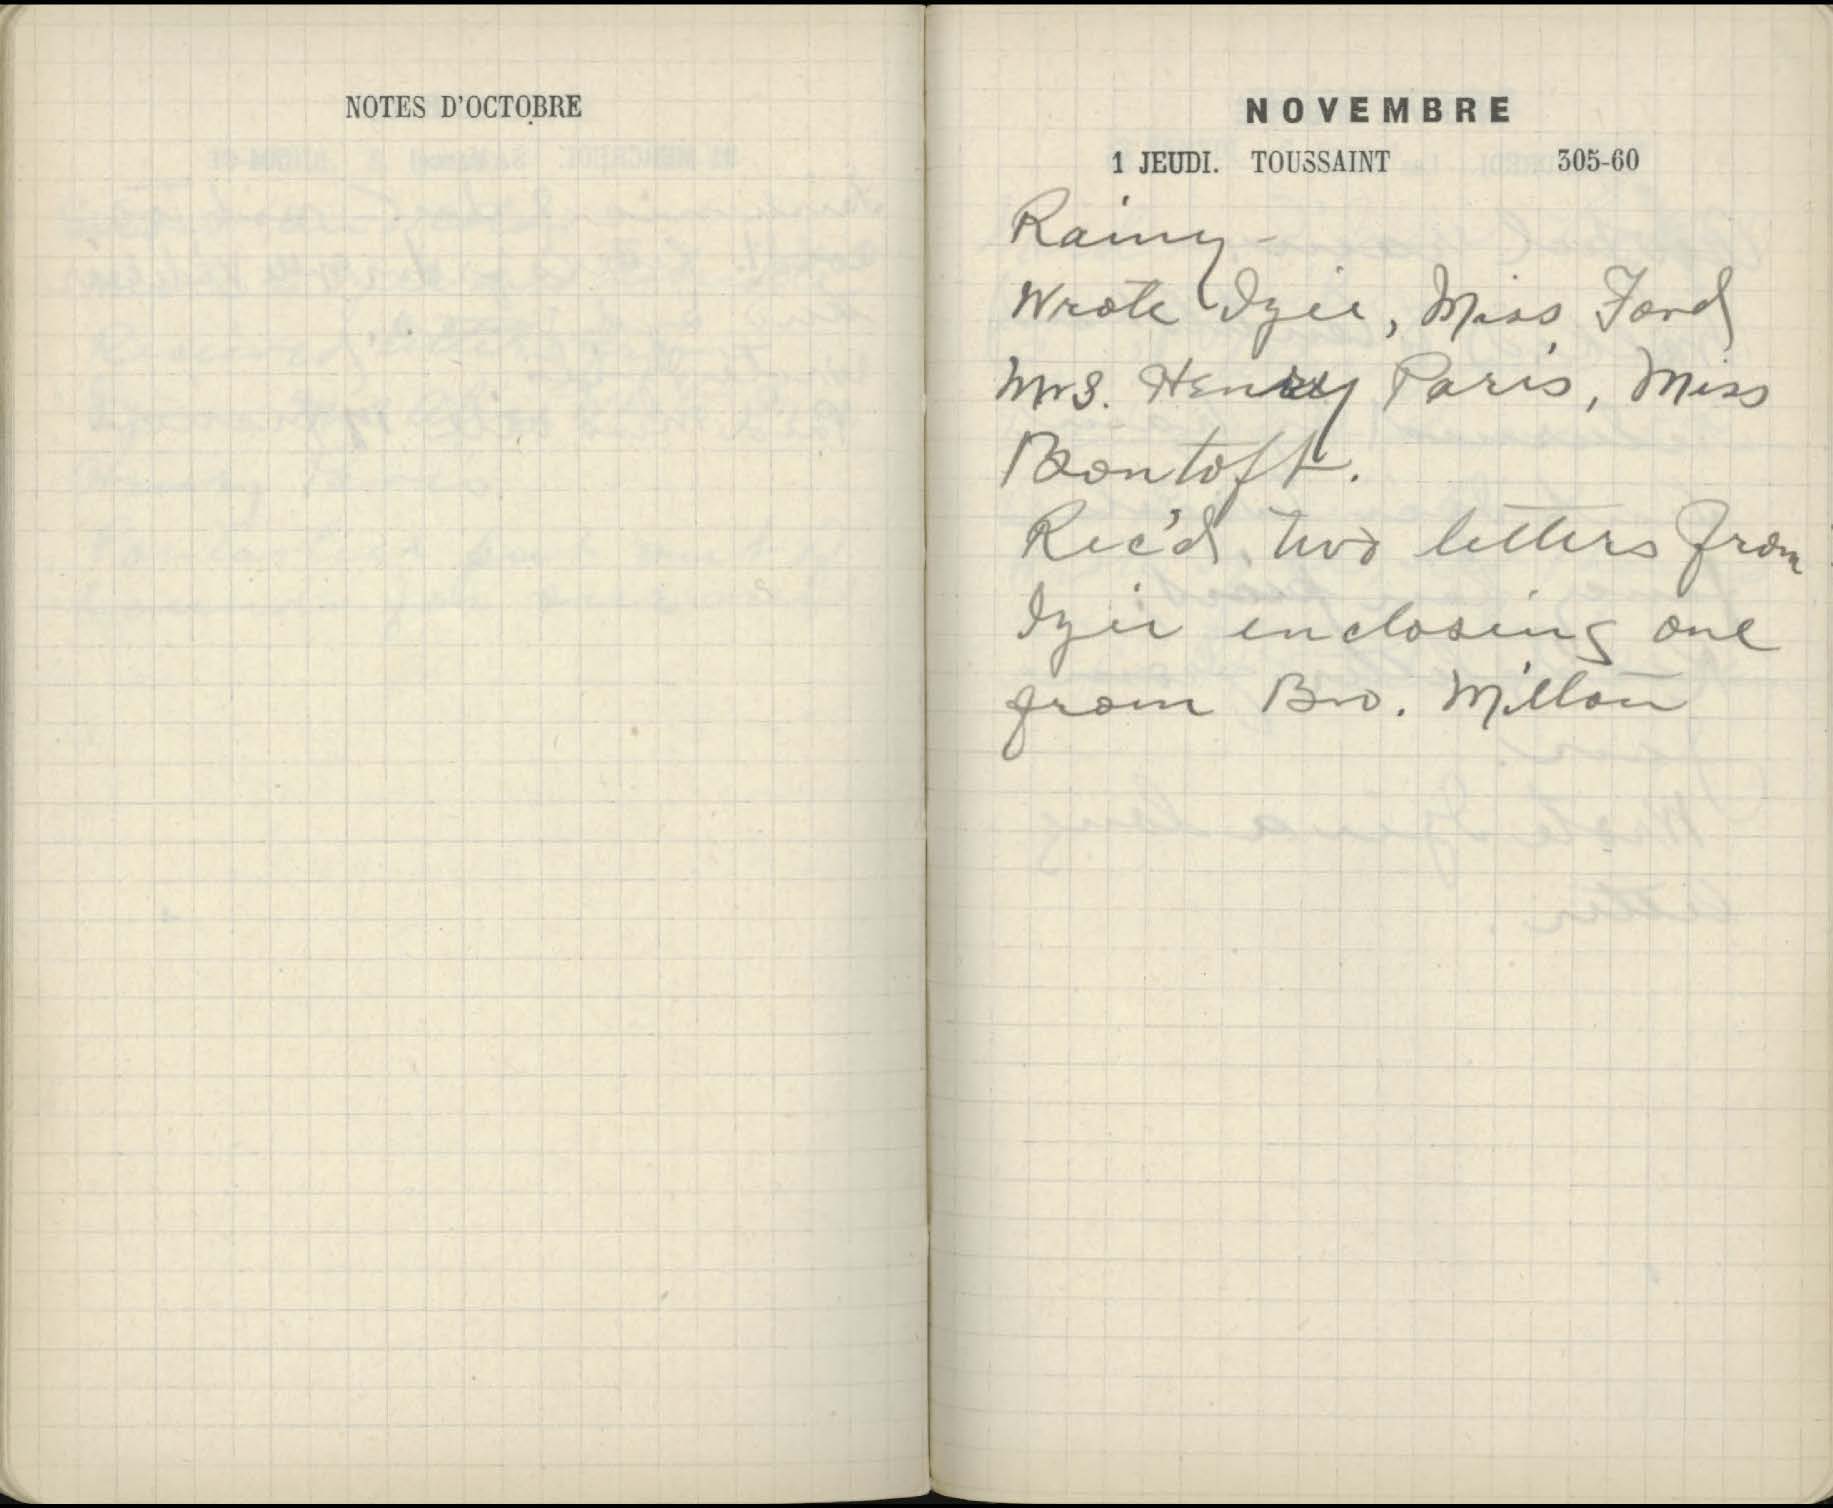 NOTES D'OCTOBRE
NOVEMBRE
1 JEUDI. TOUSSAINT 305-60
Rainy -
Wrote Izie, Miss Ford
Mrs. Henry Paris, Miss
Bontoft.
Rec'd two letters from
Izie enclosing one
from Bro. Milton